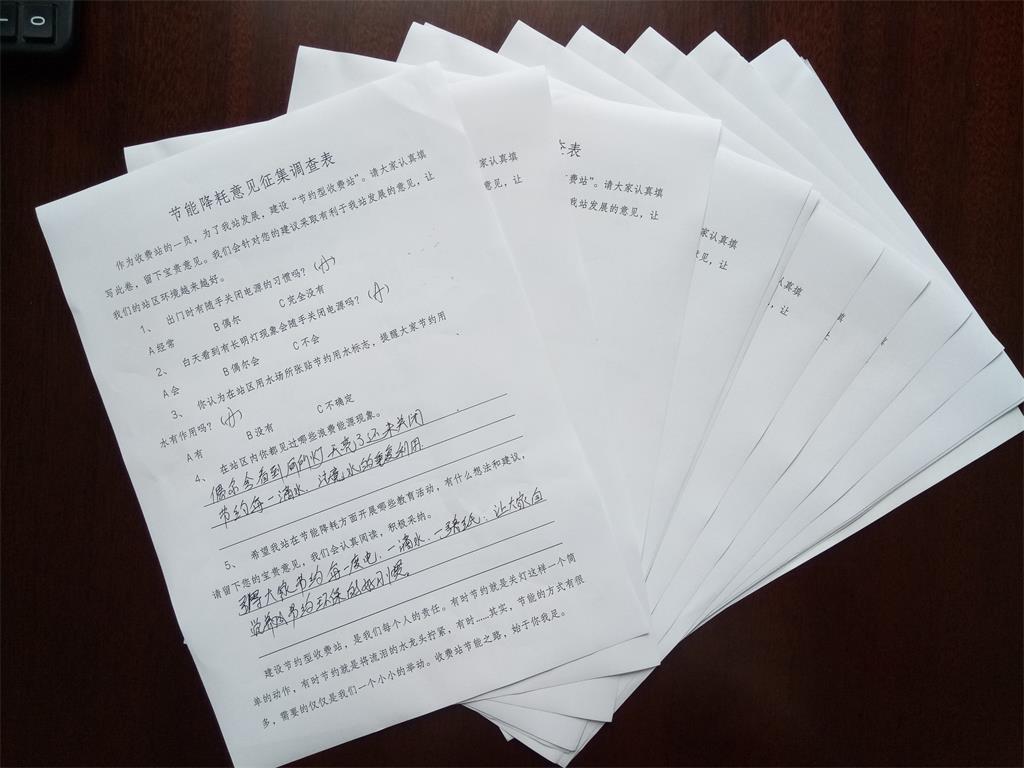 节能降耗意见征集调查表
作为收费站的一员，为了我站发展，建设“节约型收费站”。请大家认真填
写此卷，留下宝贵意见。我们会针对您的建议采取有利于我站发展的意见，让
我们的站区环境越来越好。
1、 出门时有随手关闭电源的习惯吗？（A）
A经常 B偶尔 C完全没有
2、 白天看到有长明灯现象会随手关闭电源吗？（A）
A会 B偶尔会 C不会
3、 你认为在站区用水场所张贴节约用水标志，提醒大家节约用
水有作用吗？（A）
A有 B没有 C不确定
4、 在站区内你都见过哪些浪费能源现象。
偶尔会看到厕所灯天亮了还未关闭
节约每一滴水、注意水的重复利用
5、 希望我站在节能降耗方面开展哪些教育活动，有什么想法和建议，
请留下您的宝贵意见，我们会认真阅读，积极采纳。
引导大家节约每一度电、一滴水、一张纸；让大家自
觉养成节约环保的好习惯。
建设节约型收费站，是我们每个人的责任。有时节约就是关灯这样一个简
单的动作，有时节约就是将流泪的水龙头拧紧，有时……其实，节能的方式有很
多，需要的仅仅是我们一个小小的举动。收费站节能之路，始于你我足。
家认真填
意见，让
查表
费站”。请大家认真填
我站发展的意见，让
家认真填
意见，让
认真填
，让
真填
让
填
0